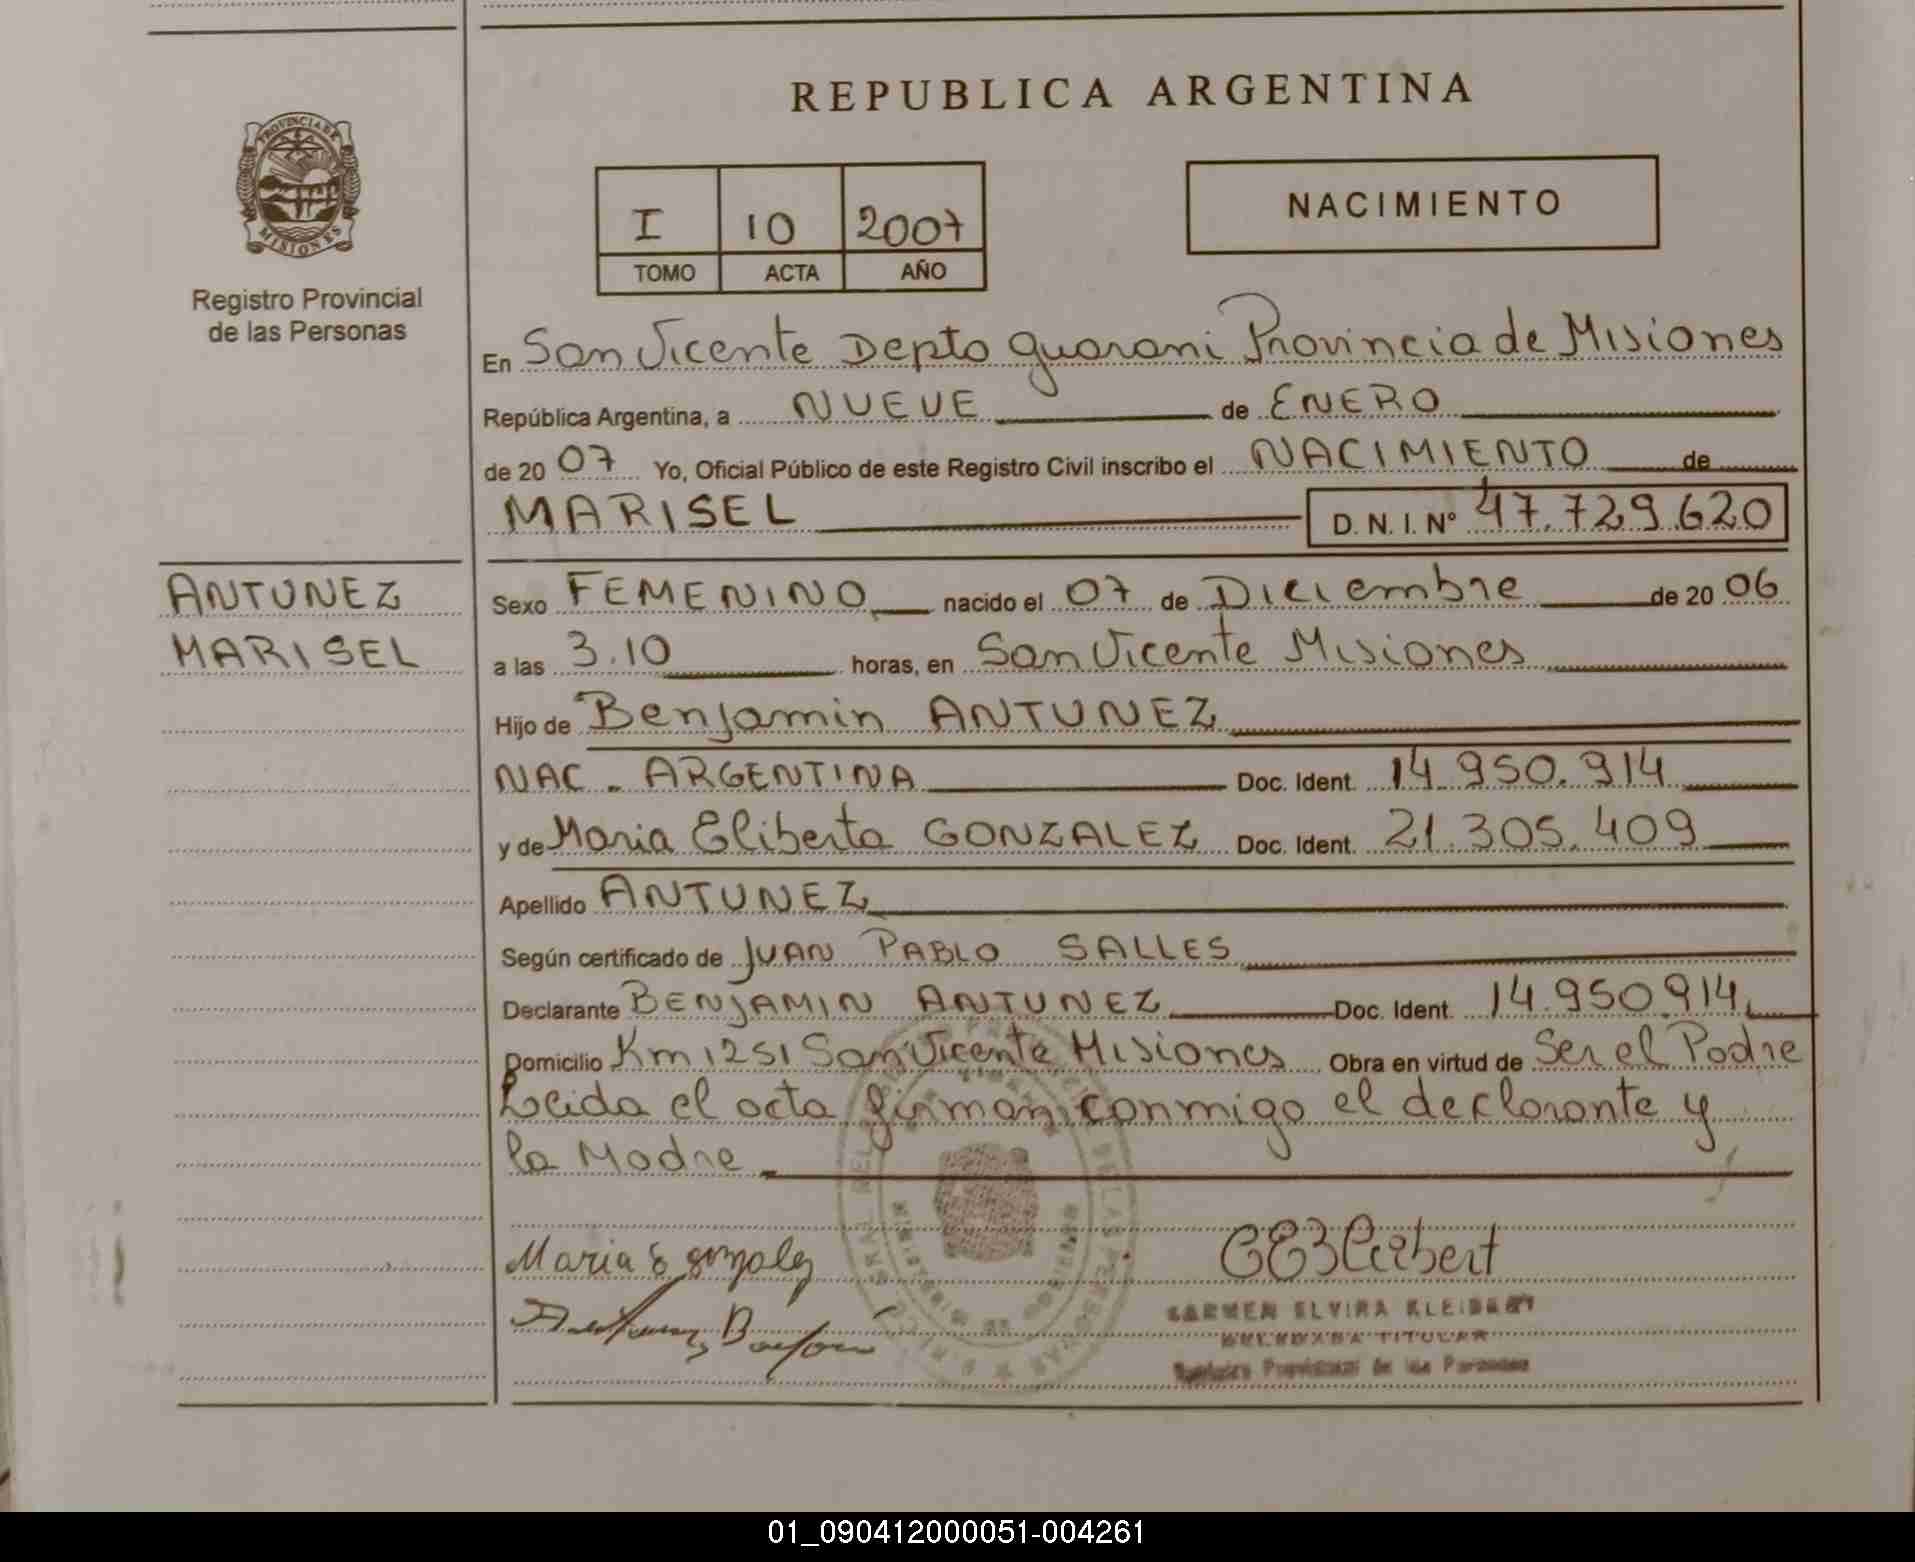 REPUBLICA ARGENTINA
PROVINCIA DE
MISIONES
Registro Provincial
de las Personas
I 10 2007
TOMO ACTA AÑO
NACIMIENTO
En San Vicente Depto Guarani Provincia de Misiones
República Argentina, a NUEVE de ENERO
de 20 07 Yo, Oficial Público de este Registro Civil inscribo el NACIMIENTO de
MARISEL D. N. I. Nº 47.729.620
ANTUNEZ
MARISEL
Sexo FEMENINO nacido el 07 de Diciembre de 20 06
a las 3.10 horas, en San Vicente Misiones
Hijo de Benjamin ANTUNEZ
NAC. ARGENTINA Doc. Ident. 14.950.914
y de Maria Eliberta GONZALEZ Doc. Ident. 21.305.409
Apellido ANTUNEZ
Según certificado de JUAN PABLO SALLES
Declarante BENJAMIN ANTUNEZ Doc. Ident. 14.950.914
Domicilio Km 1251 San Vicente Misiones Obra en virtud de Ser el Padre
Leida el acta firman conmigo el declarante y
la Madre
Maria E gonzalez
CARMEN ELVIRA KLEIBERT
TITULAR
Registro Provincial de las Personas
01_090412000051-004261